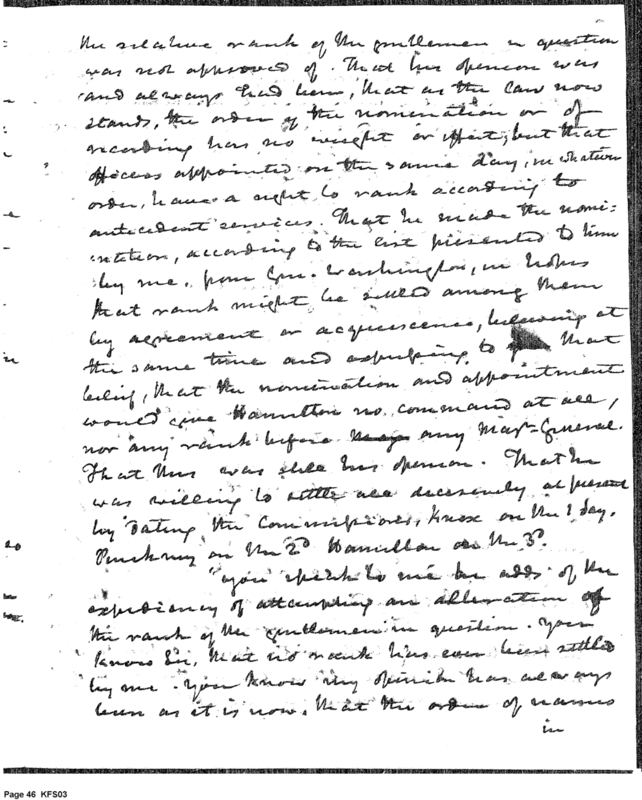 the relative rank of the gentlemen in question
was not approved of. That his opinion was
and always had been, that as the law now
stands, the order of the nomination or of
recording has no weight or effect, but that
officers appointed on the same day, in whatever
order, have a right to rank according to
antecedent services. That he made the nomi=
nation, according to the list presented to him
by me, from Gen. Washington, in hopes
that rank might be settled among them
by agreement or acquiescence, believing at
the same time and expressing to that
belief, that the nomination and appointment
would give Hamilton no command at all,
nor any rank before any Majr. General.
That this was still his opinion. That he
was willing to settle all decisively at present
by dating the Commissions, Knox on the 1 day.
Pinckney on the 2d Hamilton on the 3d.
"You speak to me he adds of the
expediency of attempting an alteration of
the rank of the gentlemen in question. You
know Sir, that no rank has ever been settled
by me. You know my opinion has always
been as it is now, that the order of names
in
Page 46 KFS03